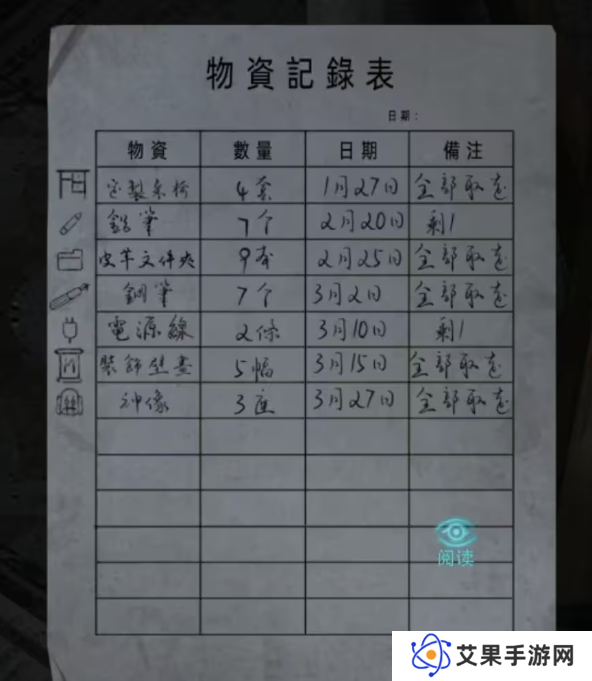 物資記錄表
日期：
物資 數量 日期 備注
定製桌椅 4套 1月27日 全部取走
鉛筆 7个 2月20日 剩1
皮革文件夾 9本 2月25日 全部取走
鋼筆 7个 3月2日 全部取走
電源線 2條 3月10日 剩1
裝飾壁畫 5幅 3月15日 全部取走
神像 3座 3月27日 全部取走
阅读
艾果手游网